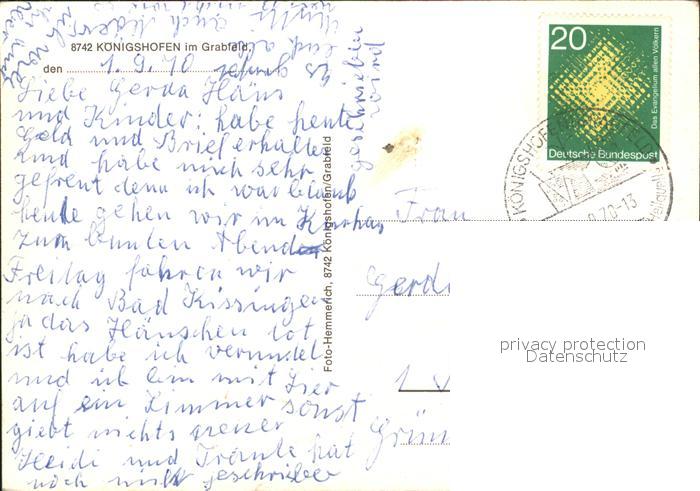 8742 KÖNIGSHOFEN im Grabfeld,
den 1.9.70
Liebe Gerda Häns
und Kinder: habe heute
Geld und Brief erhalten
und habe mich sehr
gefreut denn ich war blank
heute gehen wir im Kurhau
zum bunten Abend
Freitag fahren wir
nach Bad Kissingen
ja das Hänschen tot
ist habe ich vermudet
und ich bin mit
auf ein Zimmer sonst
giebt nichts neues
Heidi und Traute hat
noch nicht geschrieben
geschrieben
wird
Foto-Hemmerich, 8742 Königshofen/Grabfeld
20
Das Evangelium allen Völkern
Deutsche Bundespost
KÖNIGSHOFEN
70-13
Frau
Gerd
1
Grün
privacy protection
Datenschutz